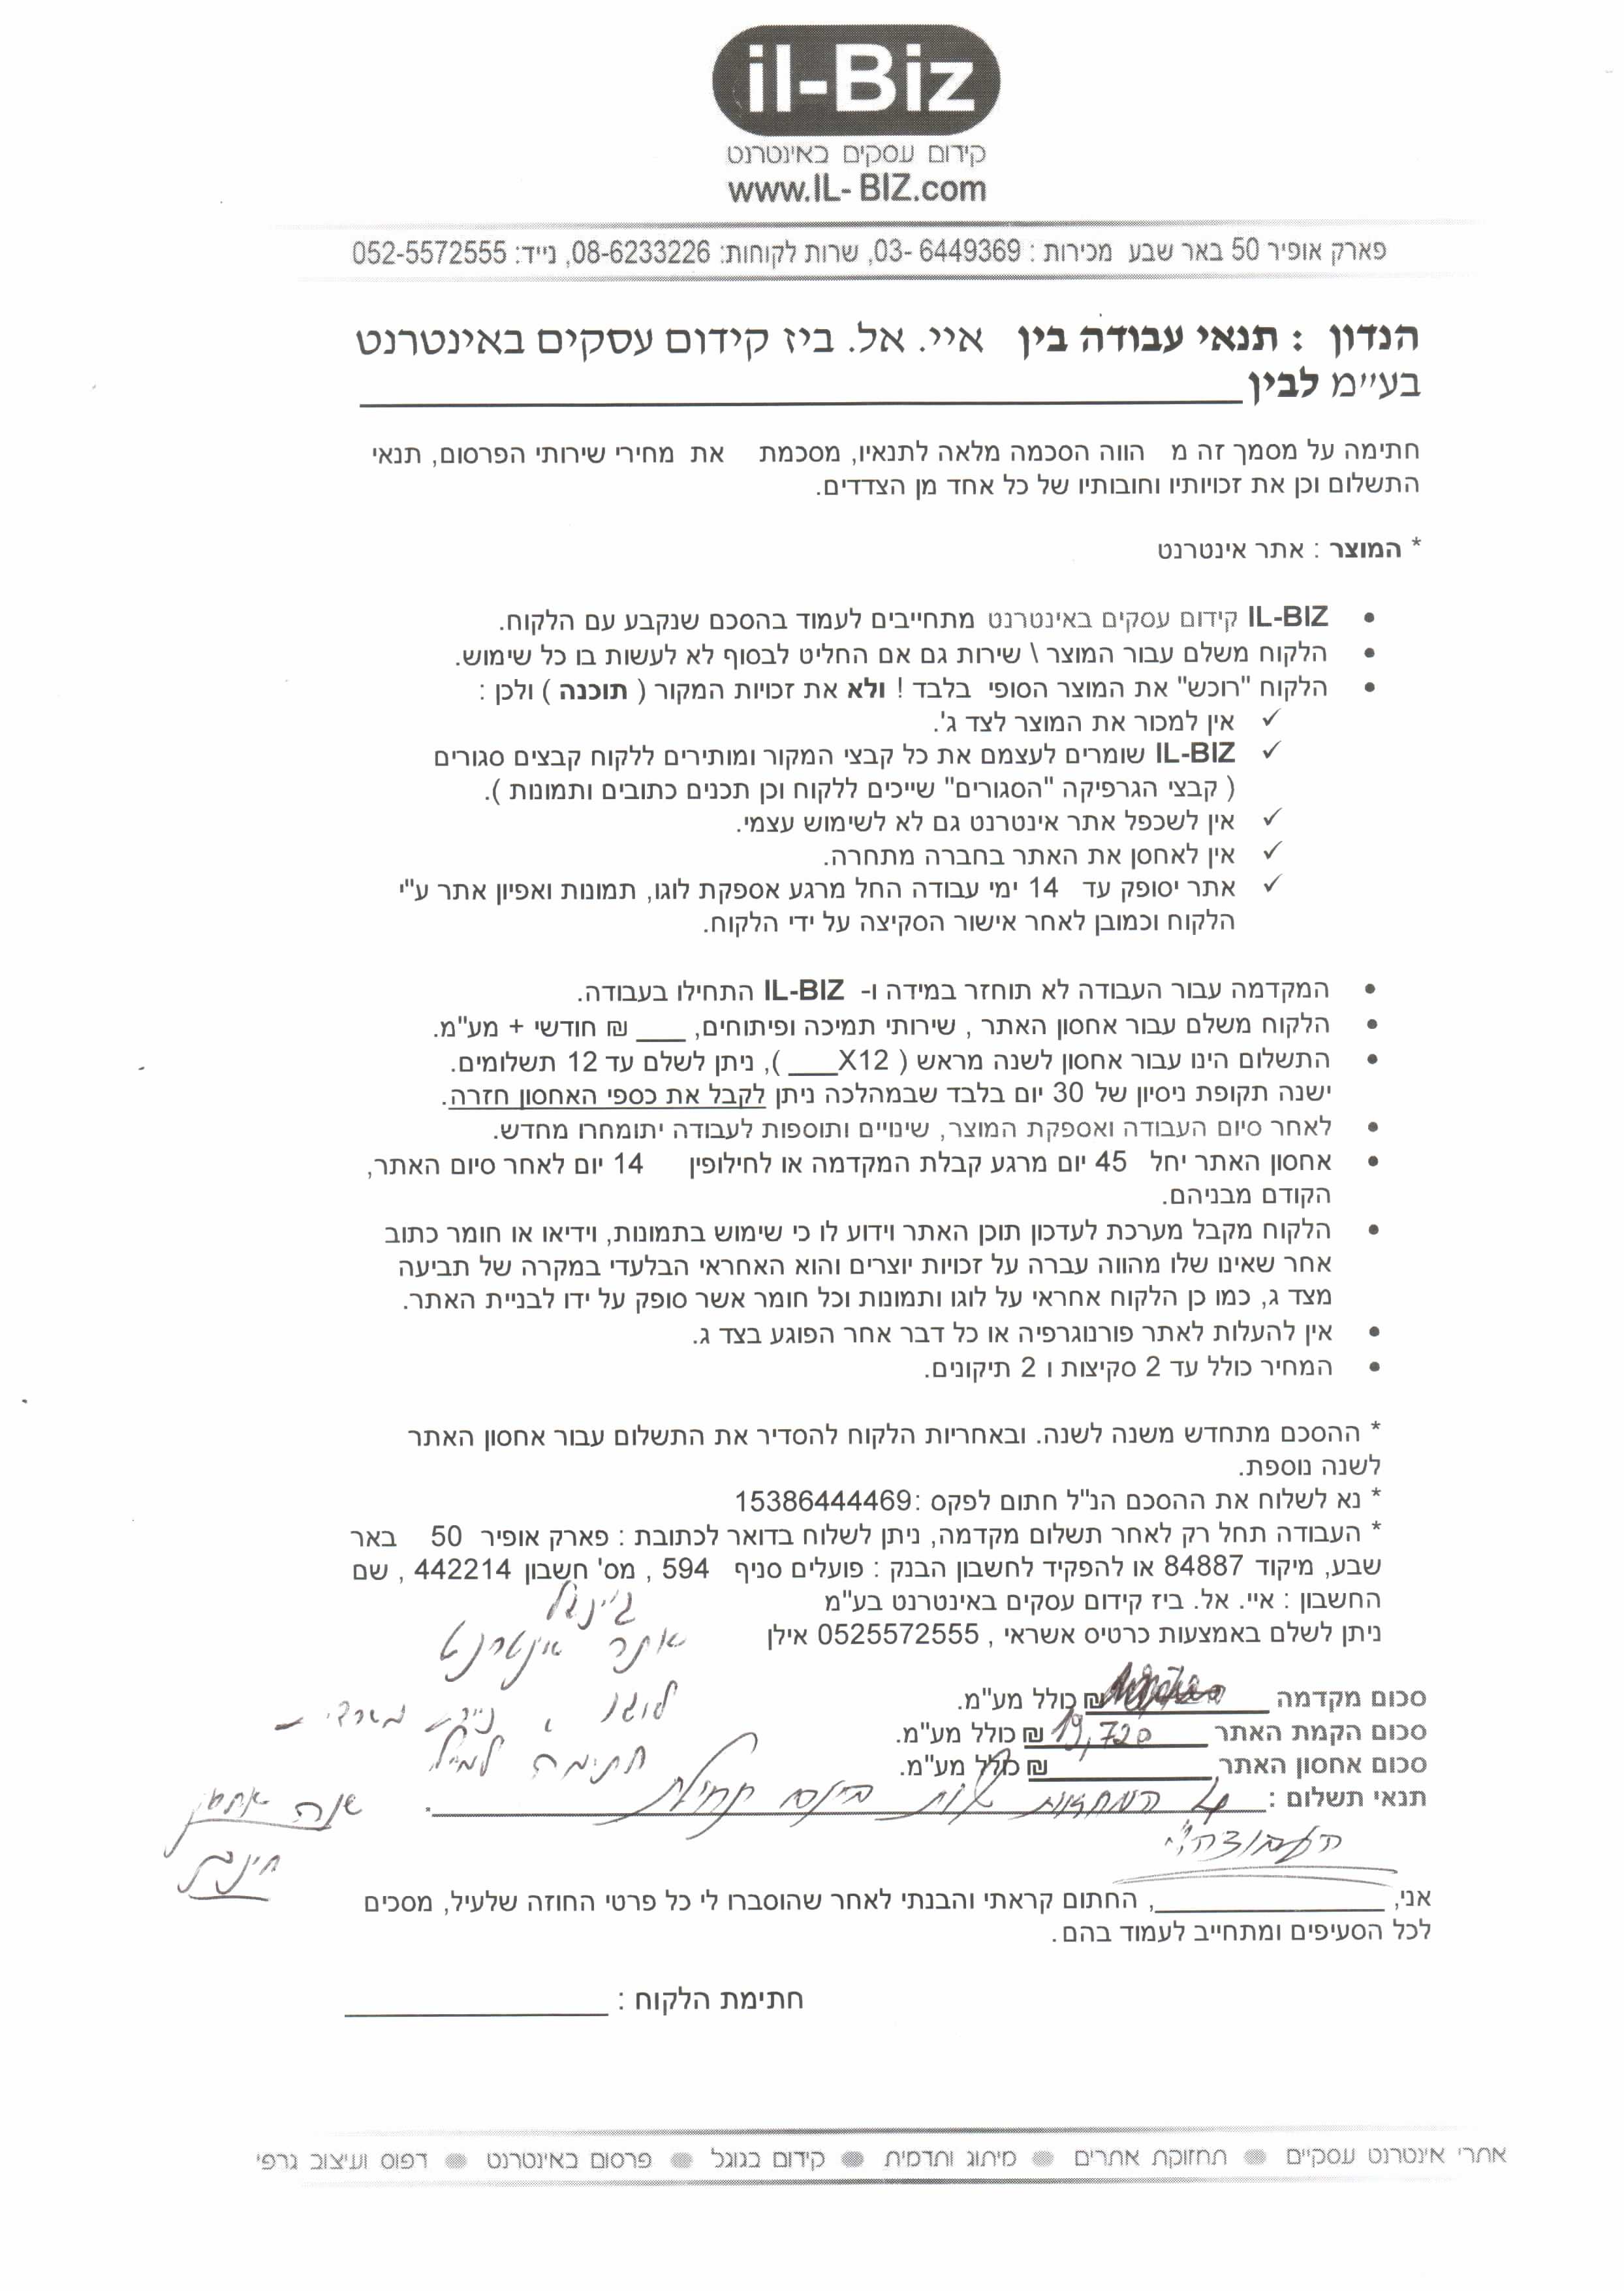 il-Biz
קידום עסקים באינטרנט
www.IL- BIZ.com
פארק אופיר 50 באר שבע מכירות : 6449369 -03, שרות לקוחות: 08-6233226, נייד: 052-5572555
הנדון : תנאי עבודה בין איי. אל. ביז קידום עסקים באינטרנט
בע״מ לבין
חתימה על מסמך זה מ הווה הסכמה מלאה לתנאיו, מסכמת את מחירי שירותי הפרסום, תנאי
התשלום וכן את זכויותיו וחובותיו של כל אחד מן הצדדים.
* המוצר : אתר אינטרנט
• IL-BIZ קידום עסקים באינטרנט מתחייבים לעמוד בהסכם שנקבע עם הלקוח.
• הלקוח משלם עבור המוצר \ שירות גם אם החליט לבסוף לא לעשות בו כל שימוש.
• הלקוח "רוכש" את המוצר הסופי בלבד ! ולא את זכויות המקור ( תוכנה ) ולכן :
✓ אין למכור את המוצר לצד ג'.
✓ IL-BIZ שומרים לעצמם את כל קבצי המקור ומותירים ללקוח קבצים סגורים
( קבצי הגרפיקה "הסגורים" שייכים ללקוח וכן תכנים כתובים ותמונות ).
✓ אין לשכפל אתר אינטרנט גם לא לשימוש עצמי.
✓ אין לאחסן את האתר בחברה מתחרה.
✓ אתר יסופק עד 14 ימי עבודה החל מרגע אספקת לוגו, תמונות ואפיון אתר ע"י
הלקוח וכמובן לאחר אישור הסקיצה על ידי הלקוח.
• המקדמה עבור העבודה לא תוחזר במידה ו- IL-BIZ התחילו בעבודה.
• הלקוח משלם עבור אחסון האתר , שירותי תמיכה ופיתוחים, ___ ₪ חודשי + מע"מ.
• התשלום הינו עבור אחסון לשנה מראש ( X12___ ), ניתן לשלם עד 12 תשלומים.
ישנה תקופת ניסיון של 30 יום בלבד שבמהלכה ניתן לקבל את כספי האחסון חזרה.
• לאחר סיום העבודה ואספקת המוצר, שינויים ותוספות לעבודה יתומחרו מחדש.
• אחסון האתר יחל 45 יום מרגע קבלת המקדמה או לחילופין 14 יום לאחר סיום האתר,
הקודם מבניהם.
• הלקוח מקבל מערכת לעדכון תוכן האתר וידוע לו כי שימוש בתמונות, וידיאו או חומר כתוב
אחר שאינו שלו מהווה עברה על זכויות יוצרים והוא האחראי הבלעדי במקרה של תביעה
מצד ג, כמו כן הלקוח אחראי על לוגו ותמונות וכל חומר אשר סופק על ידו לבניית האתר.
• אין להעלות לאתר פורנוגרפיה או כל דבר אחר הפוגע בצד ג.
• המחיר כולל עד 2 סקיצות ו 2 תיקונים.
* ההסכם מתחדש משנה לשנה. ובאחריות הלקוח להסדיר את התשלום עבור אחסון האתר
לשנה נוספת.
* נא לשלוח את ההסכם הנ"ל חתום לפקס :15386444469
* העבודה תחל רק לאחר תשלום מקדמה, ניתן לשלוח בדואר לכתובת : פארק אופיר 50 באר
שבע, מיקוד 84887 או להפקיד לחשבון הבנק : פועלים סניף 594 , מס' חשבון 442214 , שם
החשבון : איי. אל. ביז קידום עסקים באינטרנט בע"מ
ג'ינגל
ניתן לשלם באמצעות כרטיס אשראי , 0525572555 אילן
אתר אינטרנט
סכום מקדמה ₪ כולל מע"מ.
לוגו , נייר
סכום הקמת האתר 19,720 ₪ כולל מע"מ.
חתימה למייל
סכום אחסון האתר ₪ כולל מע"מ.
תנאי תשלום : 4 המחאות שוות ביום תחילת
העבודה
שנה אחסון
חינם
אני, ______, החתום קראתי והבנתי לאחר שהוסברו לי כל פרטי החוזה שלעיל, מסכים
לכל הסעיפים ומתחייב לעמוד בהם.
חתימת הלקוח :
אתרי אינטרנט עסקיים ● תחזוקת אתרים ● מיתוג ותדמית ● קידום בגוגל ● פרסום באינטרנט ● דפוס ועיצוב גרפי